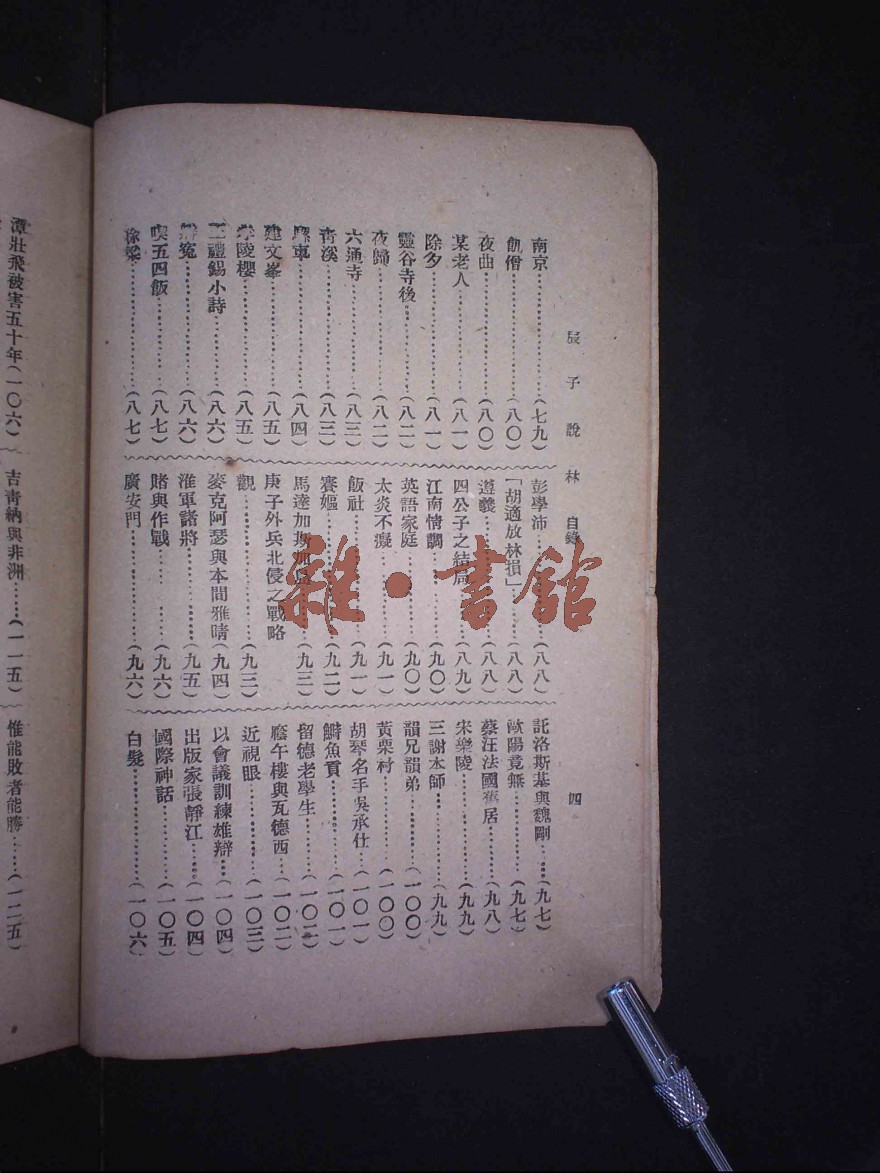 辰子說林 目錄
四
南京……………(七九)
飢僧……………(八〇)
夜曲……………(八〇)
某老人……………(八一)
除夕……………(八一)
靈谷寺後……………(八二)
夜歸……………(八二)
六通寺……………(八三)
青溪……………(八三)
騾車……………(八四)
建文峯……………(八五)
孝陵櫻……………(八五)
王禮錫小詩……………(八六)
辯冤……………(八六)
喫五四飯……………(八七)
徐樑……………(八七)
彭學沛……………(八八)
「胡適放林損」……………(八八)
遵義……………(八八)
四公子之結局……………(八九)
江南情調……………(九〇)
英語家庭……………(九〇)
太炎不癡……………(九一)
飯社……………(九一)
賽嫗……………(九二)
馬達加斯加島……………(九三)
庚子外兵北侵之戰略
觀……………(九三)
麥克阿瑟與本間雅晴(九四)
淮軍諸將……………(九五)
賭與作戰……………(九六)
廣安門……………(九六)
託洛斯基與魏剛……(九七)
歐陽竟無……………(九七)
蔡汪法國舊居……………(九八)
宋樂陵……………(九九)
三謝本師……………(九九)
韻兄韻弟……………(一〇〇)
黃栗村……………(一〇〇)
胡琴名手吳承仕……(一〇一)
鰣魚貢……………(一〇一)
留德老學生……………(一〇二)
廕午樓與瓦德西……(一〇二)
近視眼……………(一〇三)
以會議訓練雄辯……(一〇四)
出版家張靜江……(一〇四)
國際神話……………(一〇五)
白髮……………(一〇六)
譚壯飛被害五十年(一〇六)
吉青納與非洲……(一一五)
惟能敗者能勝……(一二五)
雜·書館